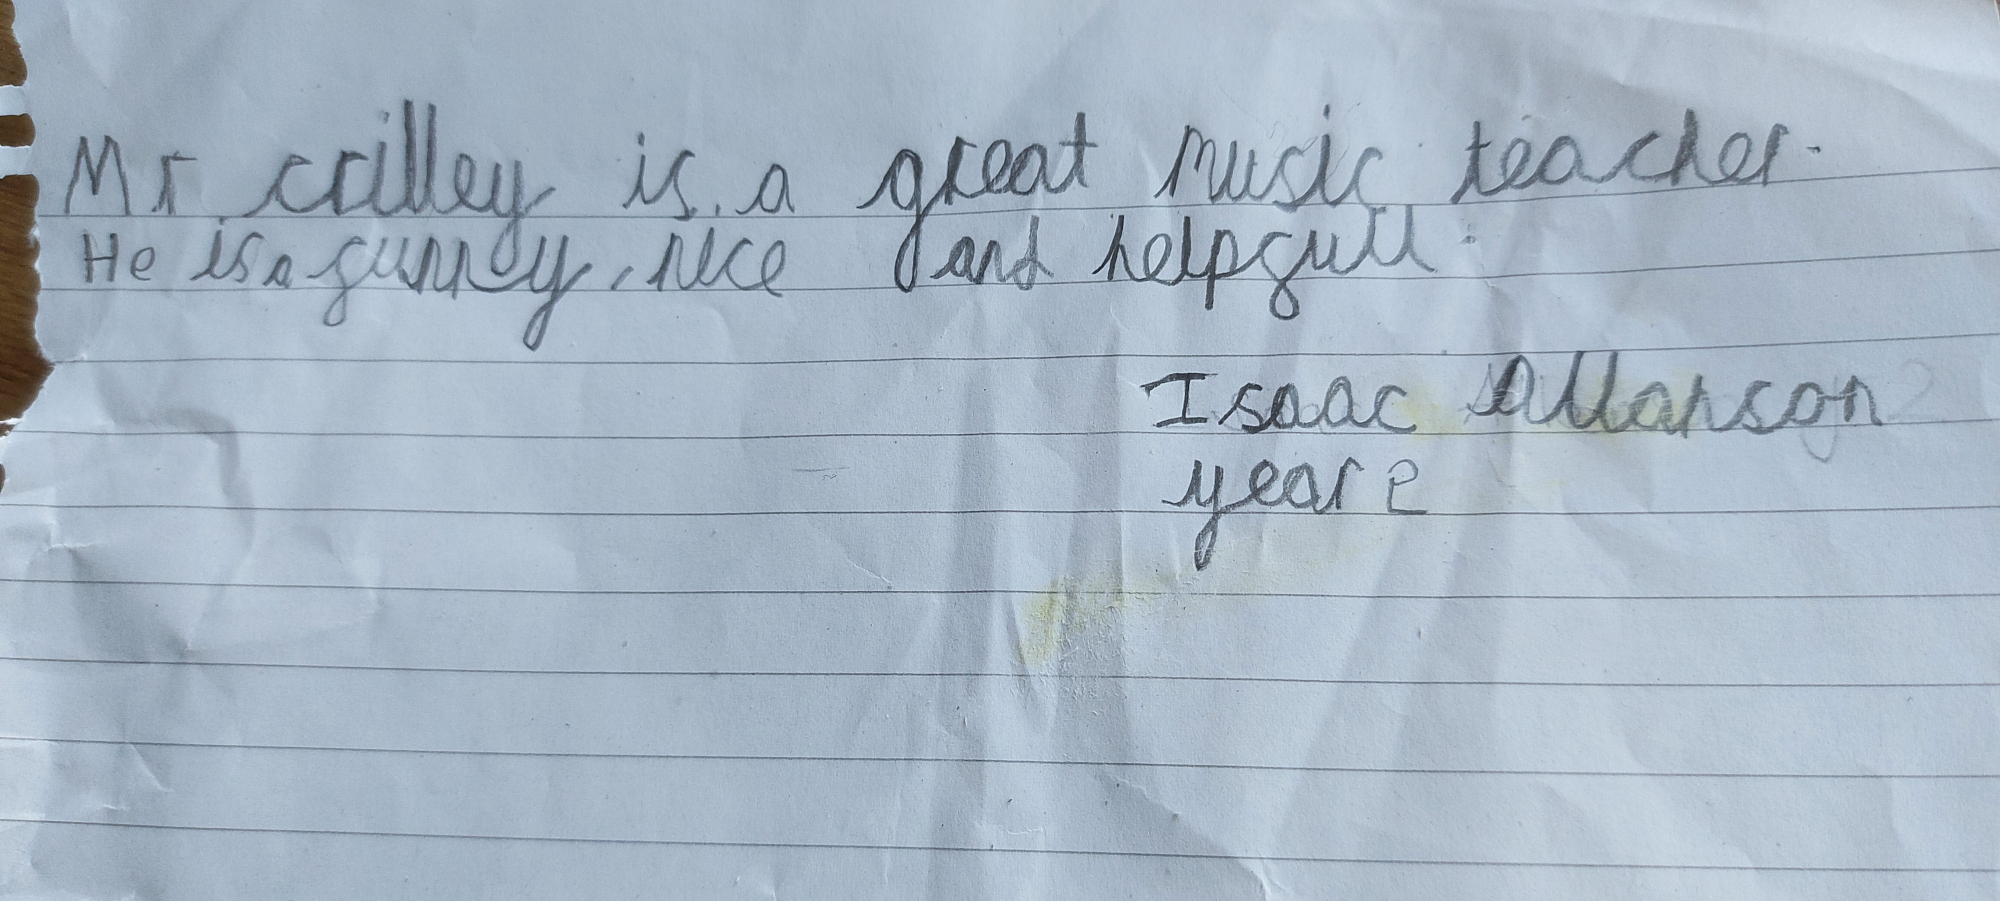 Mr crilley is a great music teacher.
He is a funny, nice and helpfull.
Isaac Allanson
year 2